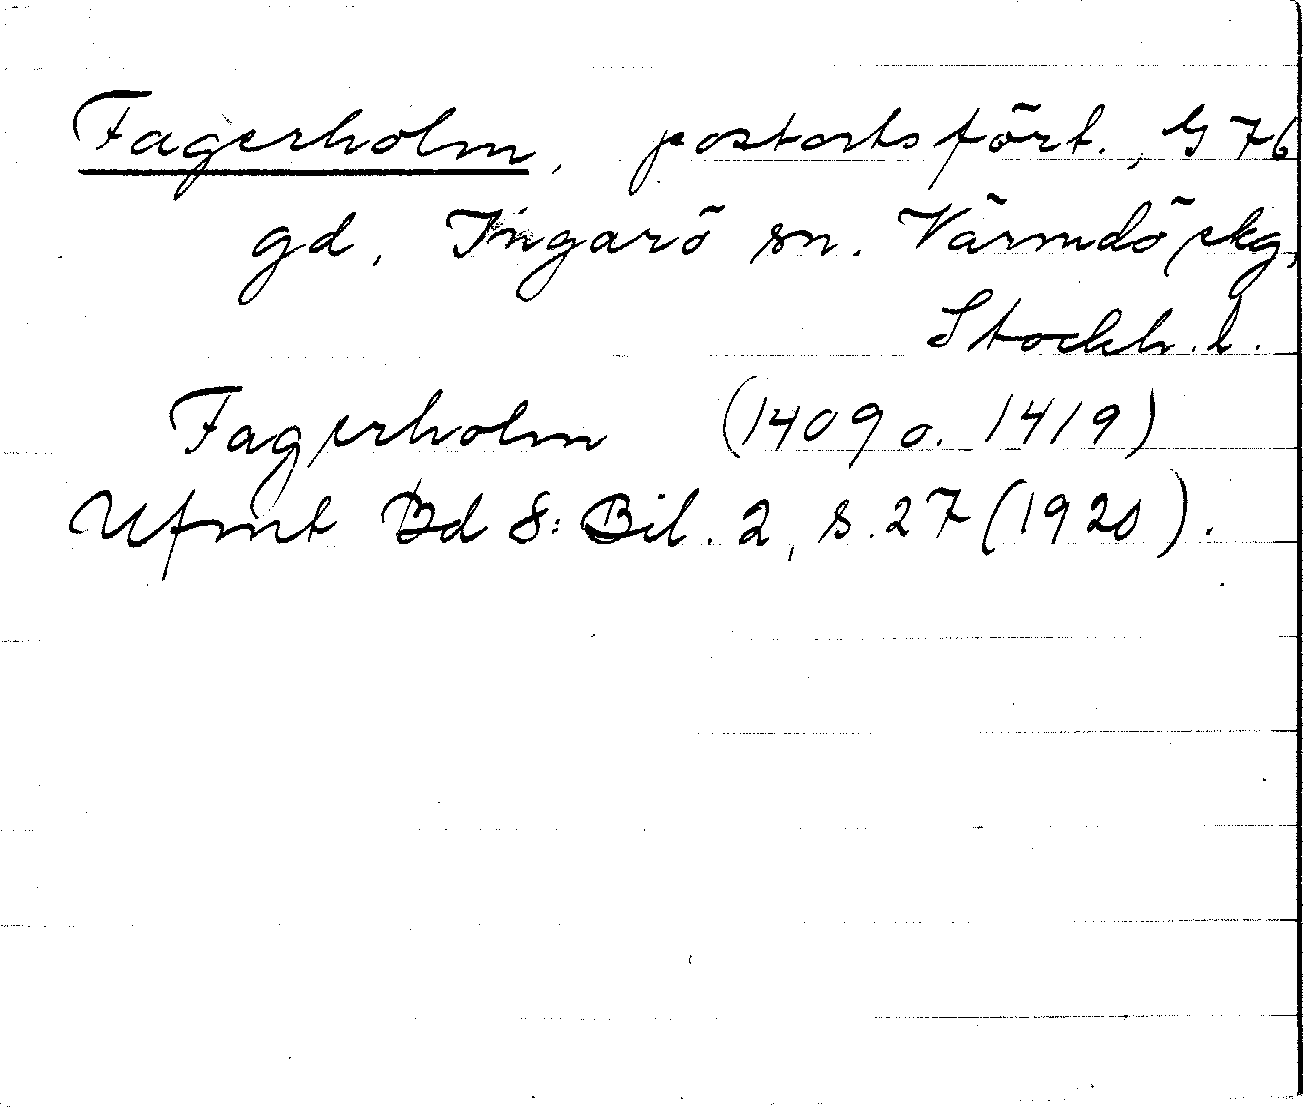 Fagerholm, postortsfört., G 76
gd, Ingarö sn. Värmdö skg,
Stockh. l.
Fagerholm (1409 o. 1419)
Ufmt Bd 8: Bil. 2, s. 27 (1920).